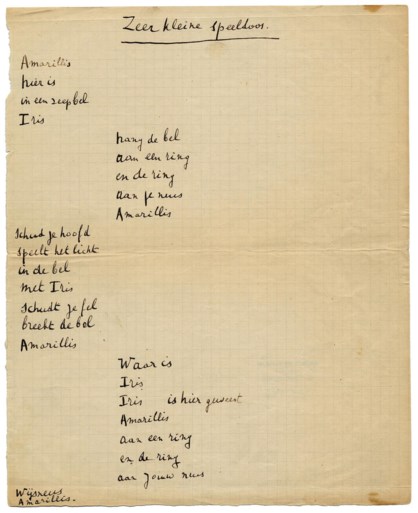 Zeer kleine speeldoos.
Amarillis
hier is
in een zeepbel
Iris
hang de bel
aan een ring
en de ring
aan je neus
Amarillis
Schud je hoofd
speelt het licht
in de bel
met Iris
Schudt je fel
breekt de bel
Amarillis
Waar is
Iris
Iris is hier geweest
Amarillis
aan een ring
en de ring
aan jouw neus
Wijsneus
Amarillis.